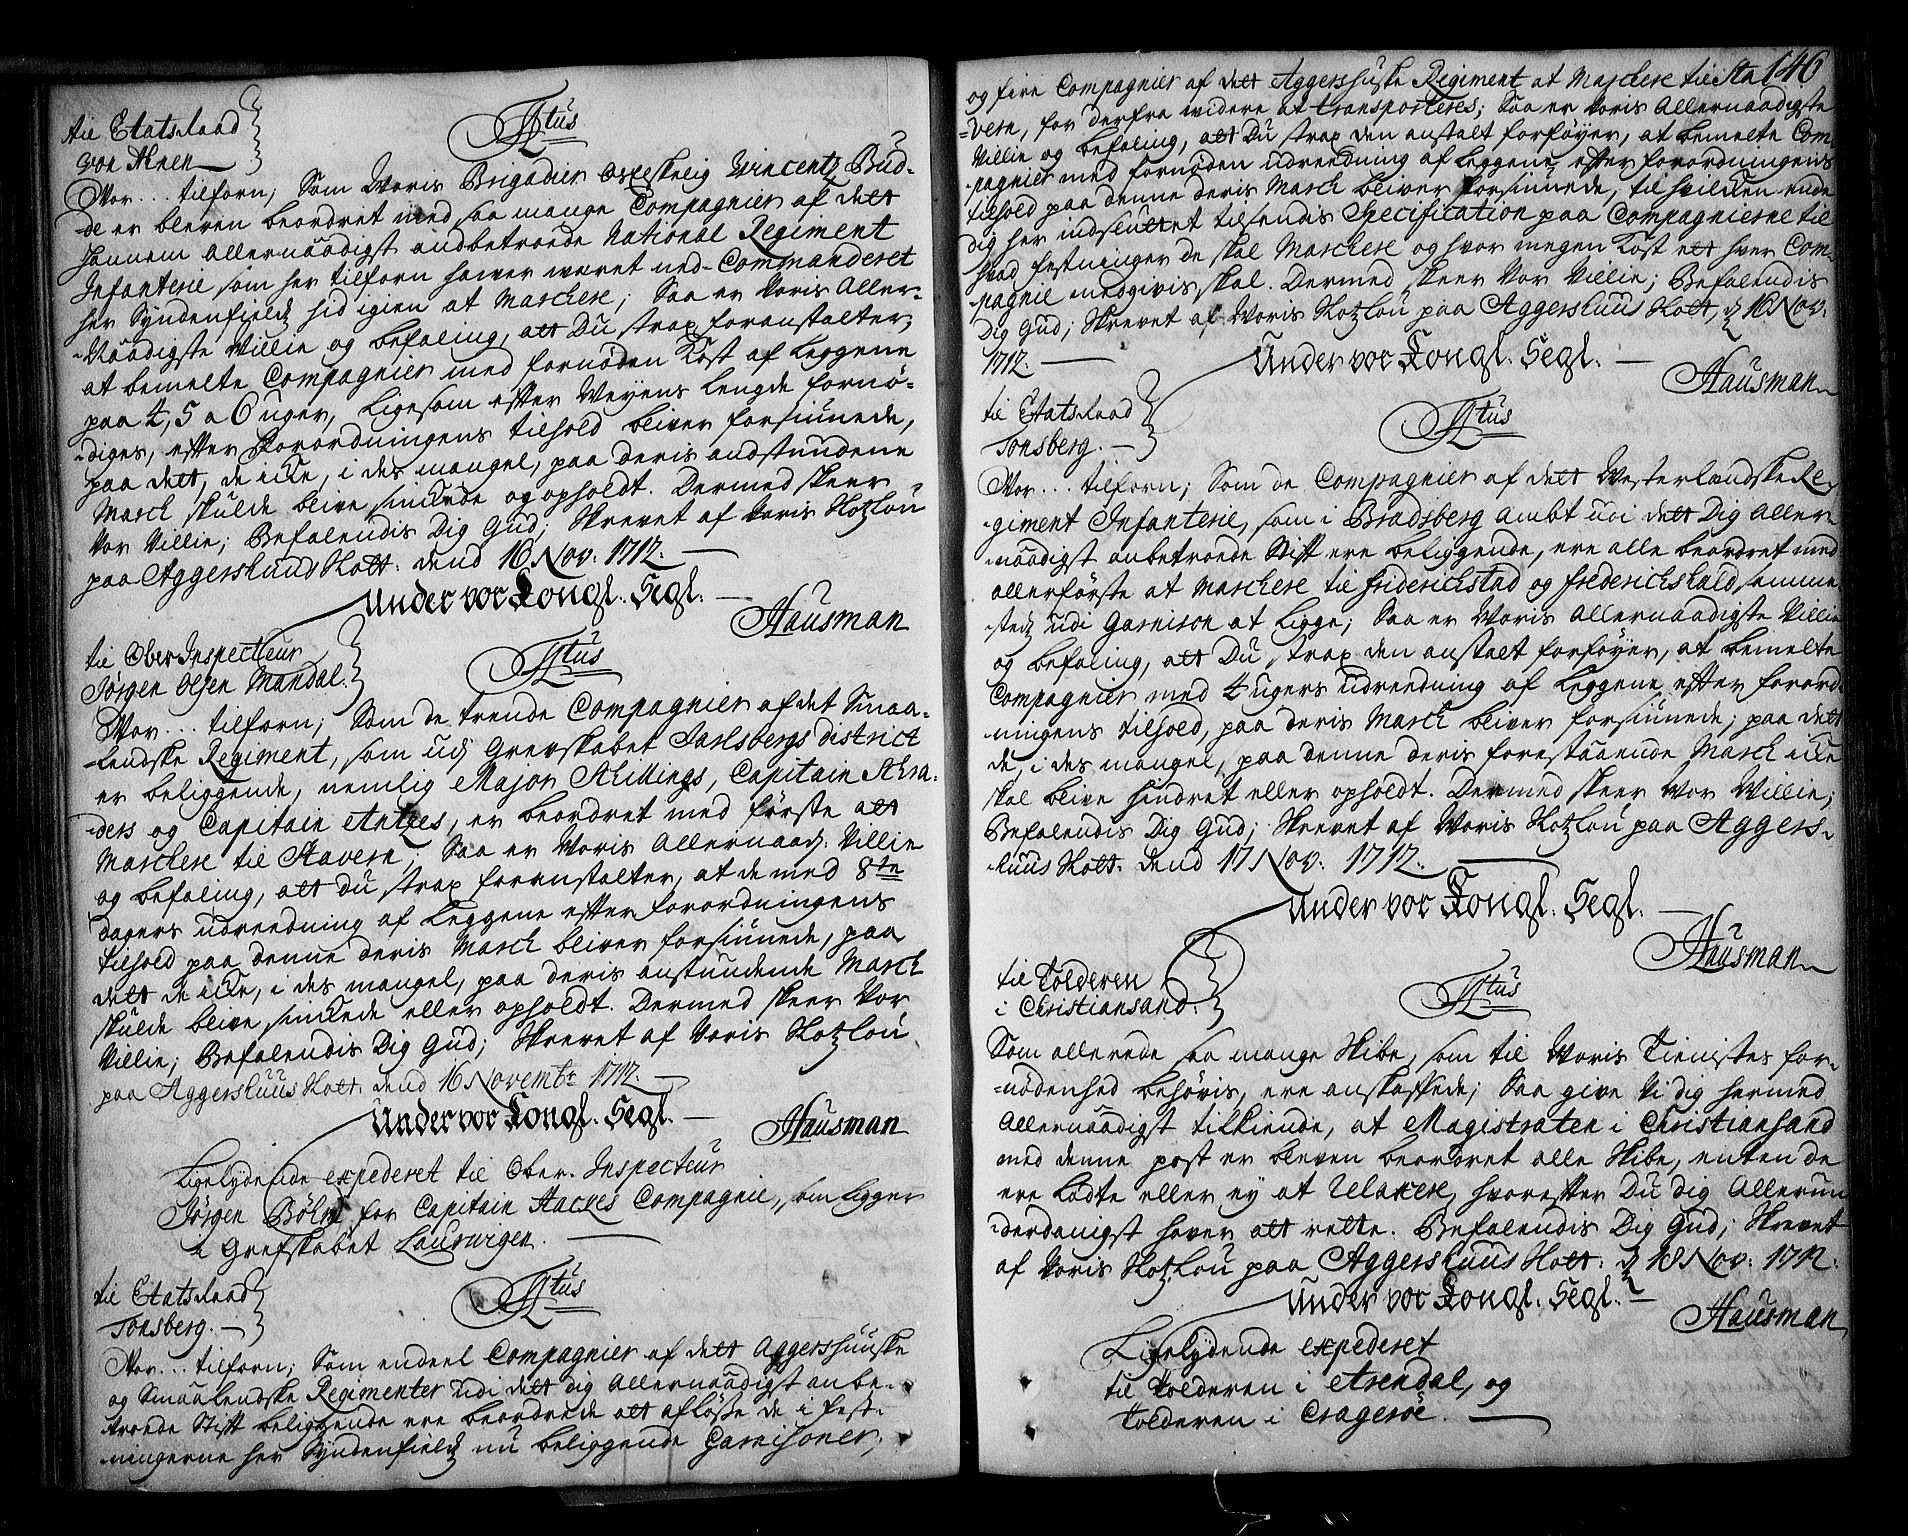 til Etatsraad
von Ahnen
Ttus
Vor... tilforn; Som Voris Brigadier Vincentz Bud-
-de er bleven beordret med saa mange Compagnier af dett
hannem allernaadigst andbetroede National Regiment
Infanterie som her tilforn hawer wæret ned-Commanderet
her Syndenfields hid igien at Marchere; Saa er Voris Aller-
-Naadigste Villie og befaling, att Du strax foranstalter,
at bemelte Compagnier med fornøden Kost af Leggene
paa 4, 5 a 6 uger, ligesom efter Weyens lengde fornø-
-diges, efter Forordningens tilhold bliver forsiunede,
paa dett, de icke, i des mangel, paa deris andstundene
March skulde blive sinckede og opholdt. Dermed skeer
Vor Villie; Befalendis Dig Gud; Skrevet af Voris Slotzlou
paa Aggershuus Slott. dend 16 Nov: 1712.
Under vor Kongl. Segl.
Hausman
til Ober Inspecteur
Jørgen Olsen Mandal.
Ttus
Vor... tilforn; Som de trende Compagnier af det Smaa-
-lendske Regiment, som udj Grevskabet Jarlsbergs district
er beliggende, nemlig Major Skillings, Capitain Stra-
-ders og Capitain Antzes, er beordret med første att
Marchere til Stavern; Saa er Voris Allernaad: Villie
og befaling, att du strax foranstalter, at de med 8te
dagers udreedning af Leggene efter forordningens
tilhold paa denne deris March bliver forsiunede, paa
dett de icke, i des mangel, paa deris anstundende March
skulde blive sinckede eller opholdt. Dermed skeer Vor
Villie; Befalendis Dig Gud; Skrevet af Voris Slotzlou
paa Aggershuus Slott. dend 16 Novembr 1712.
Under vor Kongl. Segl.
Hausman
Ligelydende expederet til Ober-Inspecteur
Jørgen Bølm for Capitain Compagnie, som ligger
i Grefskabet Laurwigen.
til Etatsraad
Tonsberg.
Ttus
Vor... tilforn; Som endeel Compagnier af dett Aggershuuske
og Smaalendske Regimenter udi dett dig Allernaadigst anbe-
-troede Stift beliggende ere beordrede att afløsse de i fest-
-ningerne her Syndenfields nu beliggende Garnisoner,
146
og fire Compagnier af dett Aggershuske Regiment at Marchere til Sta
-vern, for derfra widere at transporteres; Saa er Voris Allernaadigste
Villie og befaling, att Du strax den anstalt forføyer, at bemelte Com-
-pagnier med fornøden udreedning af Leggene efter forordningens
tilhold paa denne deris March bliver forsiunede, til hvilcken ende
dig her indsluttet tilsendis Specification paa Compagnierne til
hvad festninger de skal Marchere og hvor megen Kost ett hver Com-
-pagnie medgivis skal. Dermed skeer Vor Villie; Befalendis
Dig Gud; Skrevet af Voris Slotzlou paa Aggershuus Slott, d 16 Nov:
1712.
Under vor Kongl. Segl.
Hausman
til Etatsraad
Tonsberg.
Ttus
Vor... tilforn; Som de Compagnier af dett Westerlandske Re-
-giment Infanterie, som i Bradsberg ambt udi dett Dig Aller-
-naadigst anbetroede Stift ere beliggende, ere alle beordret med
allerførste at Marchere til Friderichstad og Frederichshald, samme-
-steds udi Garnison at ligge; Saa er Voris Allernaadigste Villie
og befaling, att Du strax den anstalt forføyer, at bemelte
Compagnier med 4 ugers udreedning af Leggene efter forord-
-ningens tilhold, paa deris March bliver forsiunede; paa dett
de, i des mangel, paa denne deris forestaaende March icke
skal blive hindret eller opholdt. Dermed skeer Vor Villie;
Befalendis Dig Gud; Skrevet af Voris Slotzlou paa Aggers-
-huus Slott: dend 17 Nov: 1712.
Under vor Kongl. Segl.
Hausman
til Tolderen
i Christiansand.
Ttus
Som allerede saa mange Skibe, som til Voris Tienistes for-
-nødenhed behøvis, ere anskaffede; Saa give Vi dig hermed
Allernaadigst tilkiende, at Magistraten i Christiansand
med denne post er bleven beordret alle Skibe, enten de
ere ladte eller ey at relaxere, hvorefter Du dig Allerun-
-derdanigst haver att rette. Befalendis Dig Gud; Skrevet
af Voris Slotzlou paa Aggershuus Slott: d 18 Nov: 1712.
Under vor Kongl. Segl.
Hausman
Ligelydende expederet
til Tolderen i Arendal, og
Tolderen i Cragerøe.